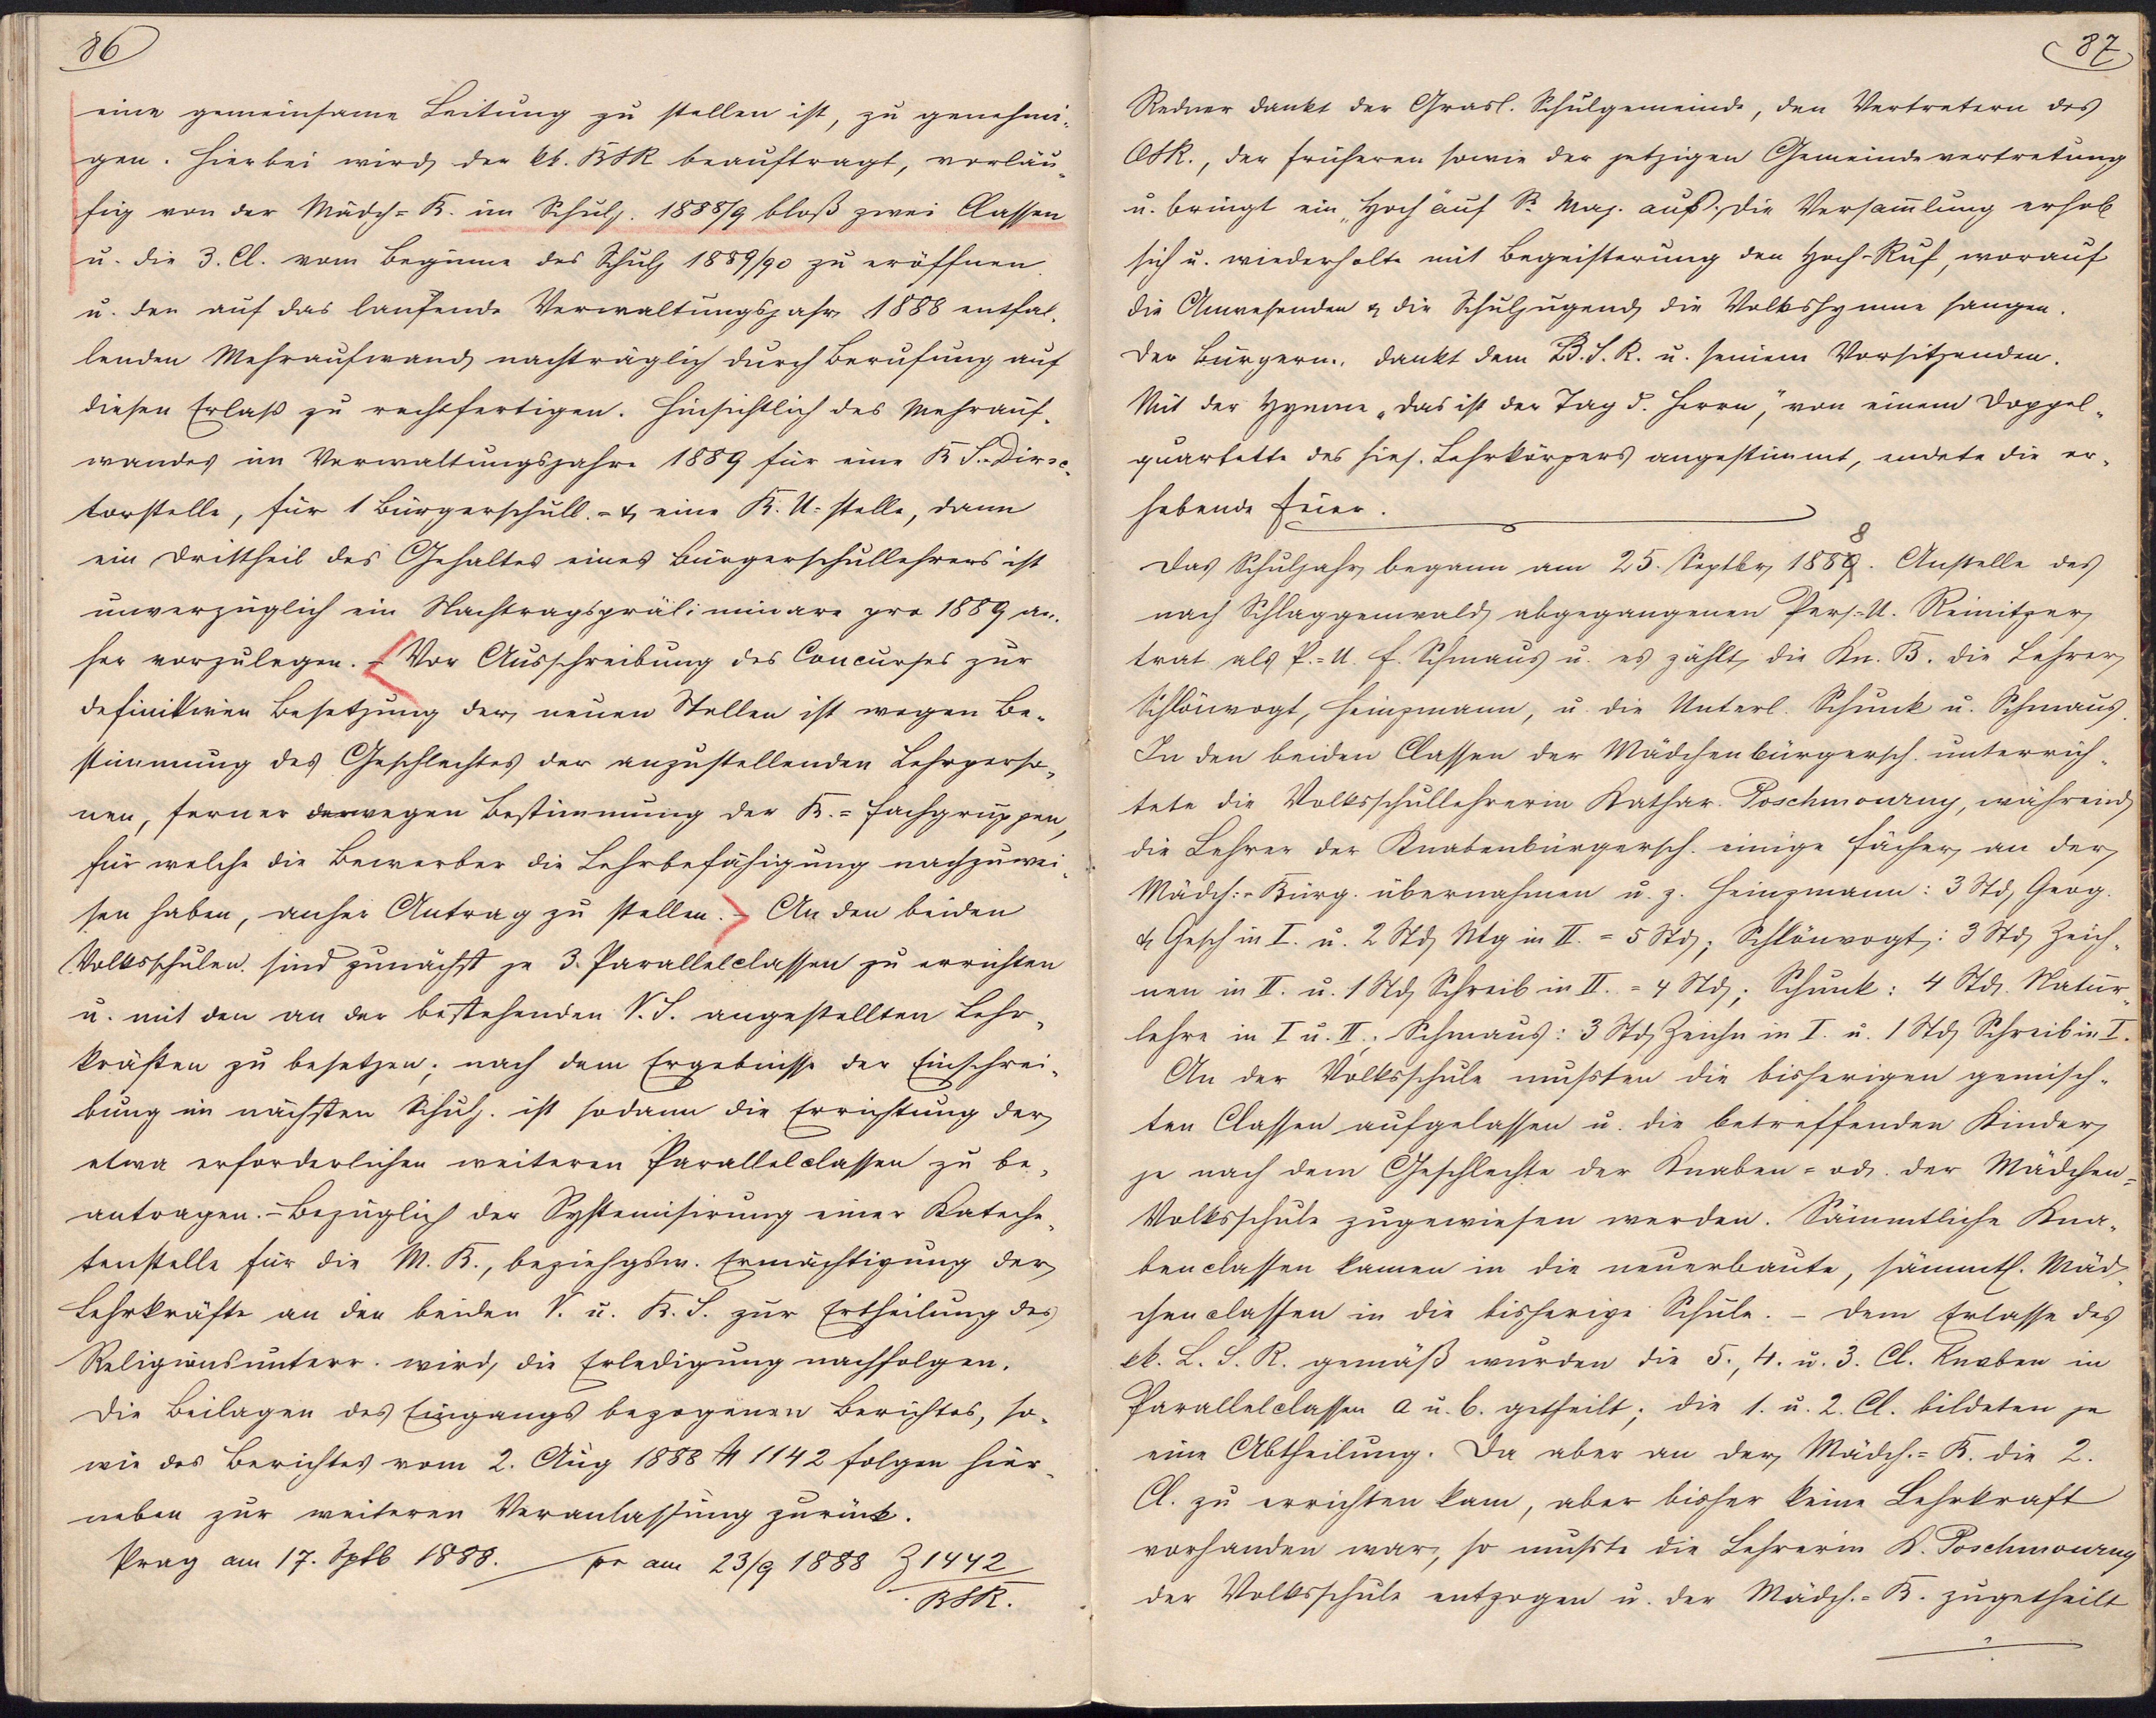 86
eine gemeinsame Leitung zu stellen ist, zu genehmi-
gen. Hierbei wird der kk. BSR beauftragt, vorläu-
fig von der Mädch-B. im Schulj. 1888/9 bloß zwei Classen
u. die 3. Cl. vom Beginne des Schulj 1889/90 zu eröffnen
u. den auf das laufende Verwaltungsjahr 1888 entfal-
lenden Mehraufwand nachträglich durch Berufung auf
diesen Erlaß zu rechtfertigen. Hinsichtlich des Mehrauf-
wandes im Verwaltungsjahre 1889 für eine B S.-Direc-
torstelle, für 1 Bürgerschull.- & eine B. U-stelle, dann
ein Drittheil des Gehaltes eines Bürgerschullehrers ist
unverzüglich ein Nachtragspräliminare pro 1889 an-
her vorzulegen. - Vor Ausschreibung des Concurses zur
definitiven Besetzung der neuen Stellen ist wegen Be-
stimmung des Geschlechtes der anzustellenden Lehrperso-
nen, ferner wegen Bestimmung der B.-Fachgruppen,
für welche die Bewerber die Lehrbefähigung nachzuwei-
sen haben, anher Antrag zu stellen. - An den beiden
Volksschulen sind zunächst je 3. Parallelclassen zu errichten
u. mit den an der bestehenden V. S. angestellten Lehr-
kräften zu besetzen; nach dem Ergebnisse der Einschrei-
bung im nächsten Schulj. ist sodann die Errichtung der
etwa erforderlichen weiteren Parallelclassen zu be-
antragen. - Bezüglich der Systemisirung einer Kateche-
tenstelle für die M. B., beziehgsw. Ermächtigung der
Lehrkräfte an den beiden V. u. B. S. zur Ertheilung des
Religionsunterr. wird die Erledigung nachfolgen.
Die Beilagen des Eingangs bezogenen Berichtes, so-
wie des Berichtes vom 2. Aug 1888 № 1142 folgen hier-
neben zur weiteren Veranlassung zurück.
Prag am 17. Sptb 1888. — pr am 23/9 1888 Z 1442
BSR.
87
Redner dankt der Grasl. Schulgemeinde, den Vertretern des
OSR., der früheren sowie der jetzigen Gemeindevertretung
u. bringt ein „Hoch" auf Sr. Maj. aus. Die Versamlung erhob
sich u. wiederholte mit Begeisterung den Hoch-Ruf, worauf
die Anwesenden & die Schuljugend die Volkshymne sangen.
Der Bürgerm. dankt dem B. S. R. u. seinem Vorsitzenden.
Mit der Hymne „Das ist der Tag d. Herrn", von einem Doppel-
quartette des hies. Lehrkörpers angestimmt, endete die er-
hebende Feier.
Das Schuljahr begann am 25. Septbr 1888. Anstelle des
nach Schlaggenwald abgegangenen Pers-U. Reinitzer
trat als P.-U. F. Schmaus u. es zählt die Kn. B. die Lehrer
Schlönvogt, Heinzmann, u. die Unterl. Schunk u. Schmaus.
In den beiden Classen der Mädchenbürgersch. unterrich-
tete die Volksschullehrerin Kathar. Poschmourny, während
die Lehrer der Knabenbürgersch. einige Fächer an der
Mädch:-Bürg. übernahmen u. z. Heinzmann: 3 Std Geog.
& Gesch in I. u. 2 Std Ntg in II. = 5 Std; Schlönvogt: 3 Std Zeich-
nen in II. u. 1 Std Schreib in II. = 4 Std; Schunk: 4 Std. Natur-
lehre in I u. II; Schmaus: 3 Std Zeichn in I. u. 1 Std Schreib in I.
An der Volksschule mußten die bisherigen gemisch-
ten Classen aufgelassen u. die betreffenden Kinder
je nach dem Geschlechte der Knaben- od. der Mädchen-
Volksschule zugewiesen werden. Sämmtliche Kna-
benclassen kamen in die neuerbaute, sämmtl. Mäd-
chenclassen in die bisherige Schule. - Dem Erlasse des
kk. L. S. R. gemäß wurden die 5., 4. u. 3. Cl. Knaben in
Parallelclassen a u. b. getheilt; die 1. u. 2. Cl. bildeten je
eine Abtheilung. Da aber an der Mädch.-B. die 2.
Cl. zu errichten kam, aber bisher keine Lehrkraft
vorhanden war, so mußte die Lehrerin K. Poschmourny
der Volksschule entzogen u. der Mädch.-B. zugetheilt